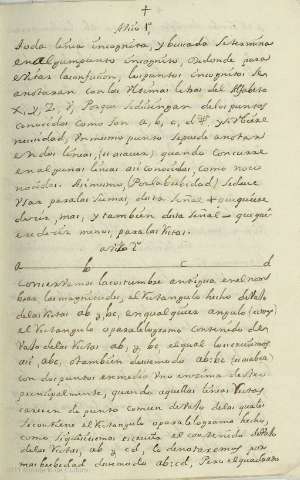 +
Año 1,
Toda linea incognita, y buscada se termina
en algun punto incognito, De donde para
evitar la confucion, los puntos incognitos se
anotaran con las Ultimas letras del Alfabeto
X, y, Z, V, Porque se distingan de los puntos
conocidos como son a, b, c, d &, y si ubiere
necisidad, Un mismo punto se puede anotar
en dos lineas, (si asiacaer) quando concurre
en algunas lineas asi conocidas, como no co
nocidas. Asimismo, (Por la brebedad) se deve
Usar para las Sumas, de esta Señal + que quiere
decir, mas, y tambien de esta Señal – que qui
ere decir menos, para las restas.
a b c d
conservamos la costumbre antigua en el nom
brar las magnitudes, el Rectangulo hecho de
delas rectas ab y bc, en qualquiera angulo
el Rectangulo o paralelogramo contenido de
delas rectas ab, y bc el qual lo escrivimos
asi, abc, o tambien deste modo ab:bc
con dos puntos en medio uno en sima de otro
principalmente, quando aquellas lineas rectas
carecen de punto comun de las quales
se contiene el Rectangulo o paralelogramo hecho,
como si quisiesemos escrivir el contenido
delas rectas, ab, y cd, lo denotaremos por
mas brebedad deste modo ab:cd, Pero el quadrado